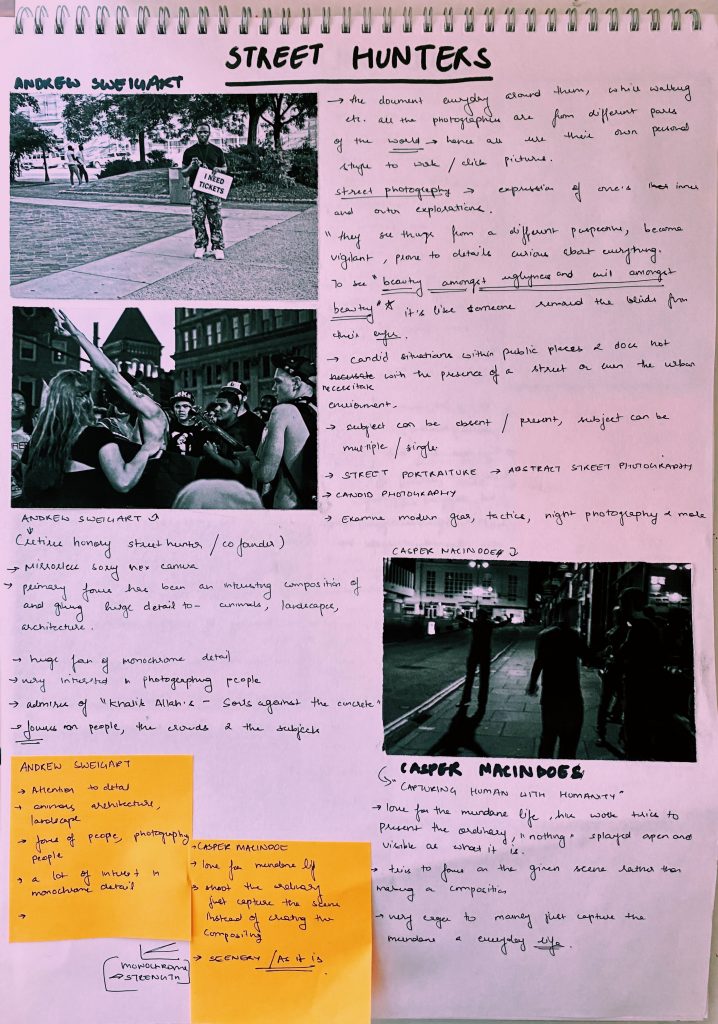 STREET HUNTERS
ANDREW SWEIGART
I NEED
TICKETS
→ the document everyday around them, while walking
etc. all the photographers are from different parts
of the world → hence all use their own personal
to work / click pictures.
street photography → expression of one's inner
and outer explorations.
"they see things from a different perspective, become
vigilant, prone to details curious about everything.
To see "beauty amongst uglyness and evil amongst
beauty" * it's like someone removed the blinds from
their eyes.
→ candid situations within public places & does not
necessitate with the presence of a street or even the urban
enviorment.
→ subject can be absent / present, subject can be
multiple / single
→ STREET PORTRAITURE → ABSTRACT STREET PHOTOGRAPHY
→ CANDID PHOTOGRAPHY
→ Examine modern gear, tactics, night photography & more
ANDREW SWEIGART
(retiree honory street hunter / co founder)
→ Mirrorless sony nex camera
→ primary focus has been an interesting composition of
and giving huge detail to - animals, landscapes,
architecture.
→ huge fan of monochrome detail
→ very interested in photographing people
→ admires of "Khalik Allah's - Souls against the concrete"
→ focuses on people, the crowds & the subjects
CASPER MACINDOE
CASPER MACINDOES
"CAPTURING HUMAN WITH HUMANITY"
→ love for the mundane life, his work tries to
present the ordinary, "nothing" splayed open and
visible as what it is.
→ tries to focus on the given scene rather than
making a composition
→ very eager to mainly just capture the
mundane & everyday life.
ANDREW SWEIGART
→ Attention to detail
→ animals, architecture,
landscape
→ focus of people, photography
people
→ a lot of interest in
monochrome detail
→
CASPER MACINDOE
→ love for mundane life
→ shoot the ordinary
just capture the scene
instead of creating the
compositing
→ SCENERY / AS IT IS
MONOCHROME
→ STRENGTH